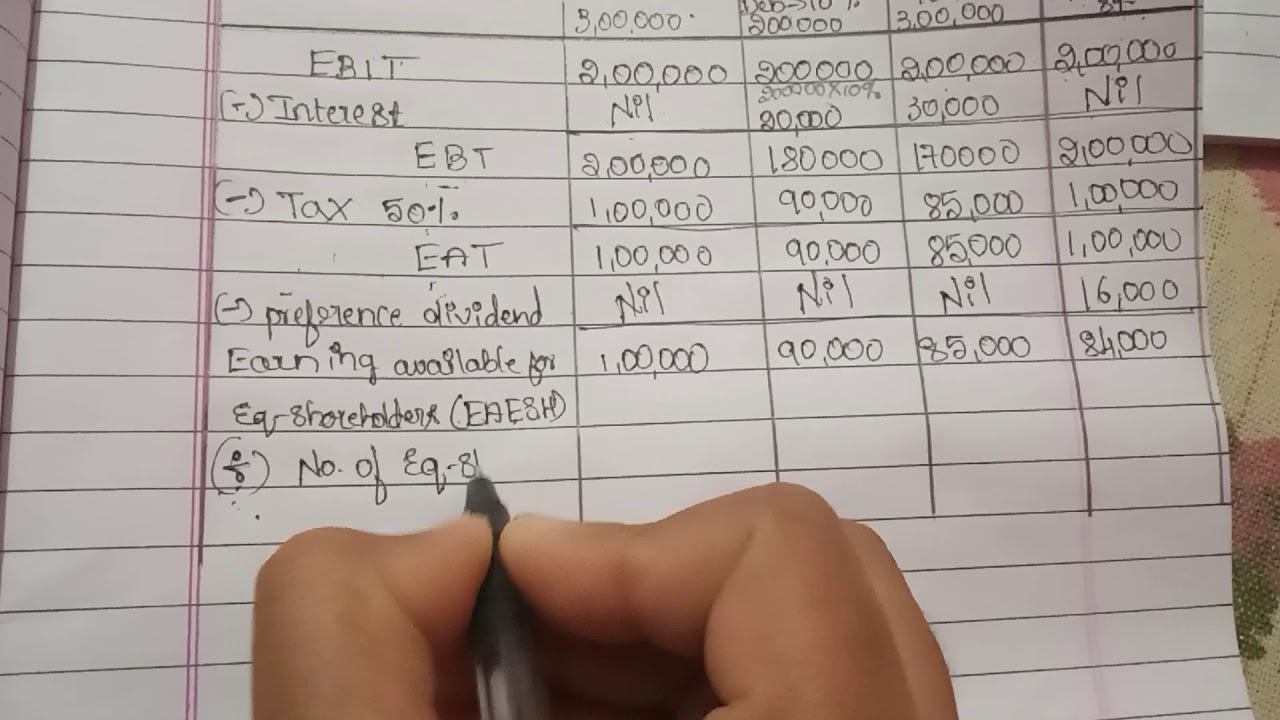 3,00,000 200000 3,00,000
EBIT 2,00,000 200000 200,000 2,00,000
200000x10%
(-) Interest Nil 20,000 30,000 Nil
EBT 200,000 180000 170000 2,00,000
(-) Tax 50% 1,00,000 90,000 85,000 1,00,000
EAT 1,00,000 90,000 85,000 1,00,000
(-) preference dividend Nil Nil Nil 16,000
Earning available for 1,00,000 90,000 85,000 84,000
Eq-Shareholders (EAESH)
No. of Eq-S